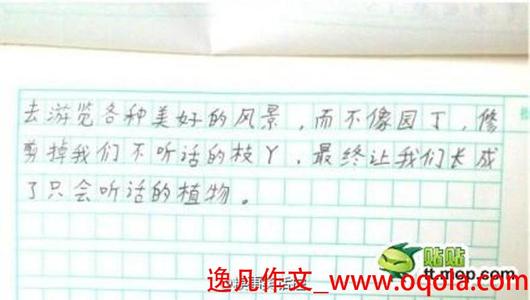 去游览各种美好的风景，而不像园丁，修
剪掉我们不听话的枝丫，最终让我们长成
了只会听话的植物。
贴贴
tt.mop.com
逸凡作文_www.oqola.com